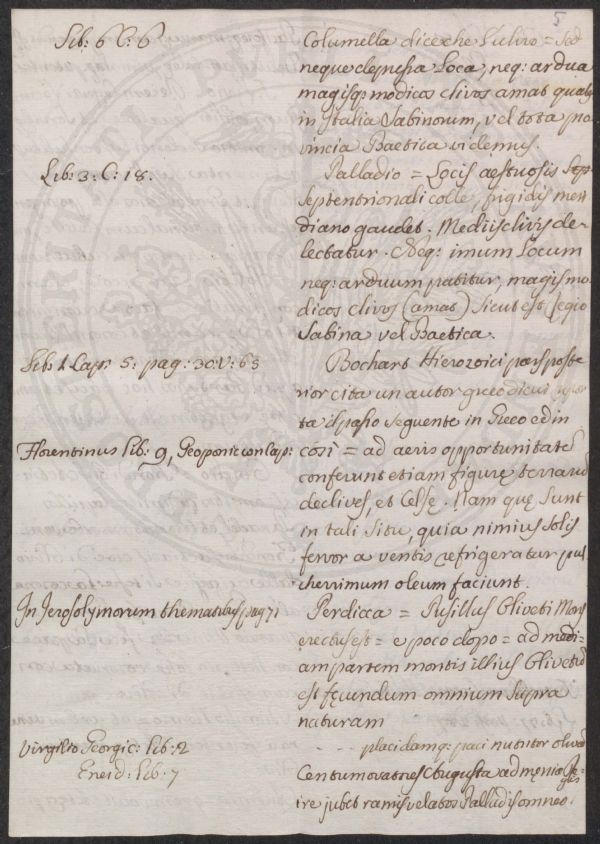 5
Lib: 6 C: 6
Columella dice che l'ulivo = sed
neque depressa Loca, neq: ardua
magisq; modicos clivos amat quales
in Italia Sabinorum, vel tota pro
vincia Baetica videmus.
Lib: 3: C: 18.
Palladio = Locis aestuosis
Septentrionali colle, frigidis meri
diano gaudet. Mediis clivis de
lectatur. Neq: imum Locum
neq: arduum patitur, magis mo
dicos clivos (amat) sicut est regio
Sabina vel Baetica.
Lib: 1 Cap: 5: pag: 30: V: 65
Bochart Hierozoici pars poste
rior cita un autor greco di cui
ta il passo seguente in Greco ed in
Florentinus lib: 9, Geoponicon Cap:
così = ad aeris opportunitatē
conferunt etiam figurę terrarū
declives, et Celsę. Nam quę sunt
in tali situ, quia nimius solis
fervor a ventis refrigeratur pul
cherrimum oleum faciunt.
In Jerosolymorum thematibus pag 71
Perdicca = Pusillus Oliveti Mons
erectus est = e poco dopo = ad medi=
am partem montis illius Olivetū
est fęcundum omnium supra
naturam
Virgilio Georgic: lib: 2
- - - placidamq: paci nutritor olivā
Eneid: Lib: 7
Centum oratores Augusta ad męnia
ire jubet ramis velatos Palladis omnes.